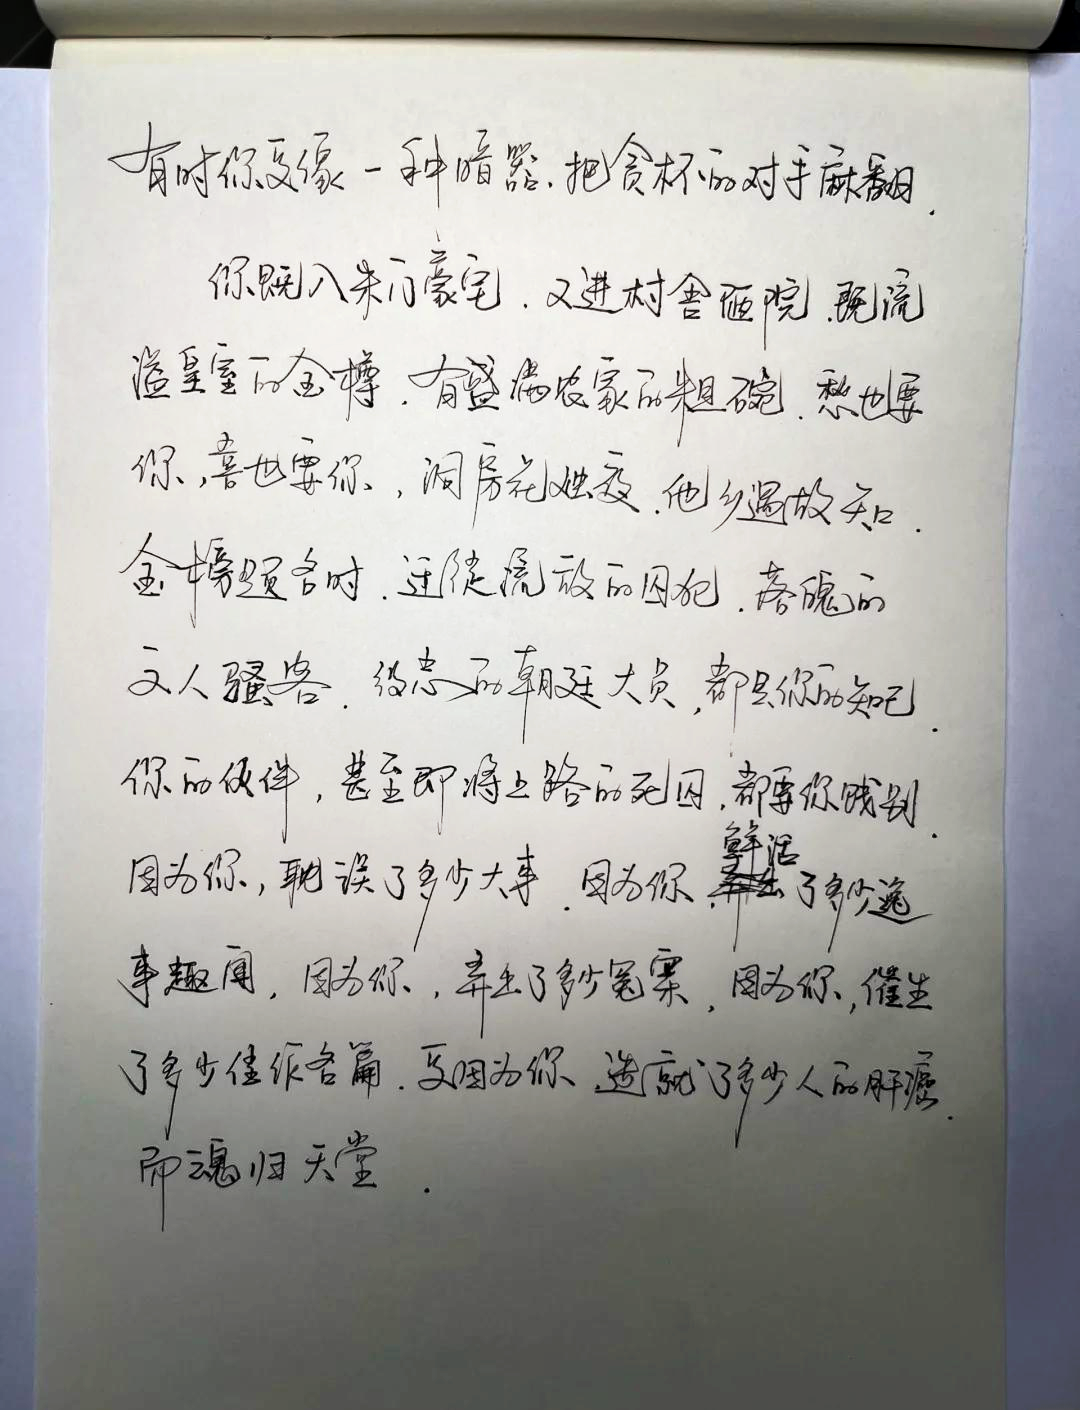 有时你又像一种暗器,把贪杯的对手麻翻.
你既入朱门豪宅,又进村舍陋院,既流
溢皇室的金樽,有盛满农家的粗碗,愁也要
你,喜也要你,洞房花烛夜,他乡遇故知.
金榜题名时,迁徙流放的囚犯,落魄的
文人骚客,得志的朝廷大员,都是你的知己.
你的伙伴,甚至即将上路的死囚,都要你饯别.
因为你,耽误了多少大事,因为你,鲜活了多少逸
事趣闻,因为你,弄出了多少冤案,因为你,催生
了多少佳作名篇,又因为你,造就了多少人的肝癌.
而魂归天堂.